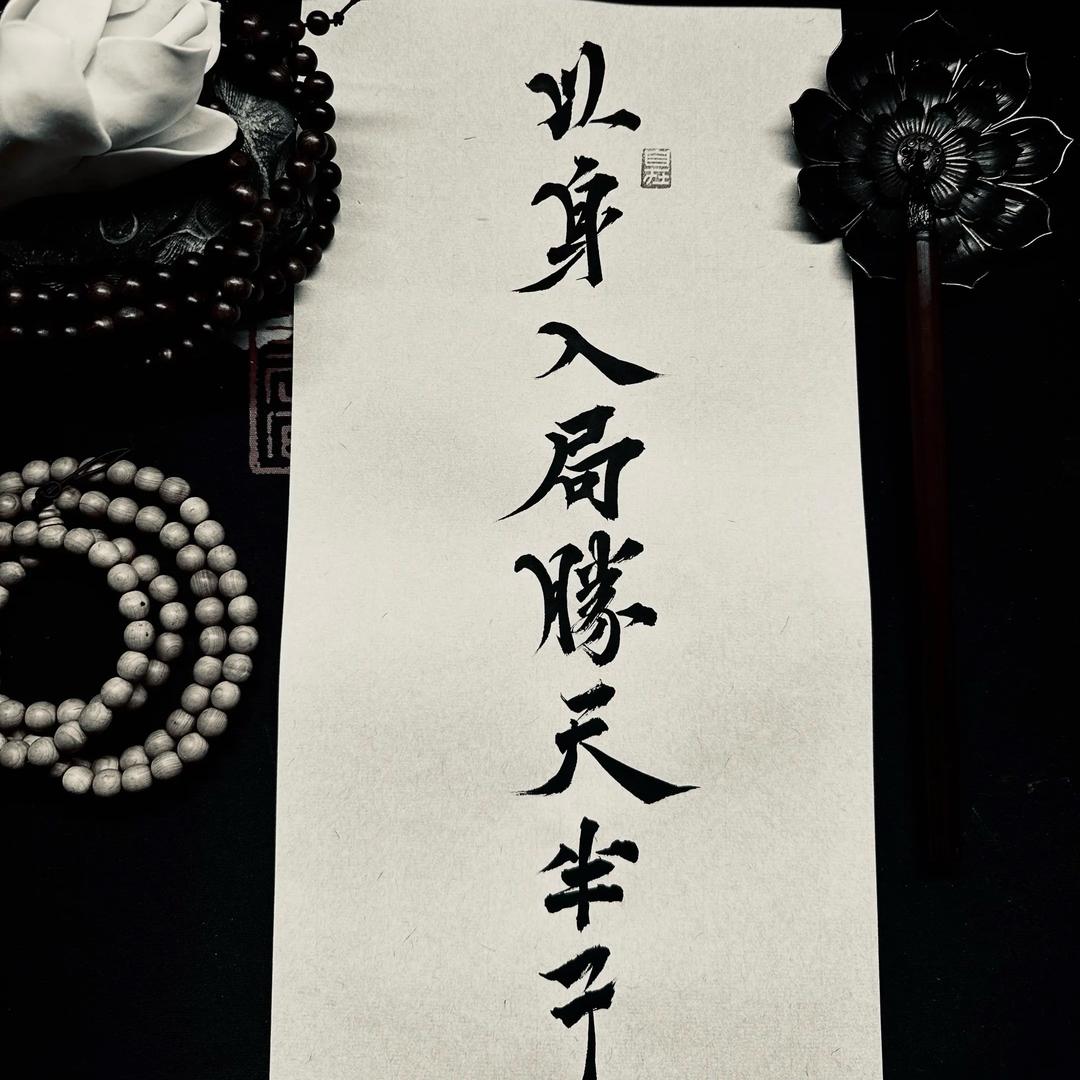 以身入局勝天半子